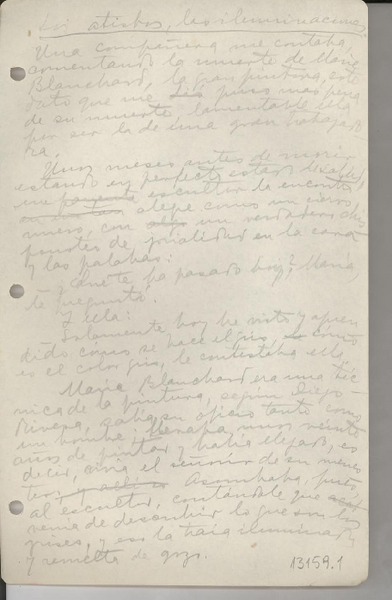 Los atisbos, las iluminaciones.
Una compañera me contaba,
comentando la muerte de María
Blanchard, la gran pintora, este
dato que me dió puso más pena
de su muerte, lamentable
por ser la de una gran trabajado
ra.
Unos meses antes de morir
estando en perfecto estado de salud,
un escultor la encontró
alegre como un ciervo
nuevo, con algo un verdadero des
puntes de genialidad en la cara
y las palabras:
¿Qué te ha pasado hoy, María,
le preguntó.
Y ella:
Solamente hoy he visto y apren
dido como se hace el gris como
es el color gris, le contestaba ella.
María Blanchard era una téc
nica de la pintura, según Diego
Rivera, sabía su oficio tanto como
un hombre. Llevaba unos veinte
años de pintar y había llegado, es
decir, era el señorío de su menes
ter, Asombraba, pues,
al escultor, contándole que
de descubrir lo que son los
grises, y eso la traía iluminada
y revuelta de gozo.
13159.1